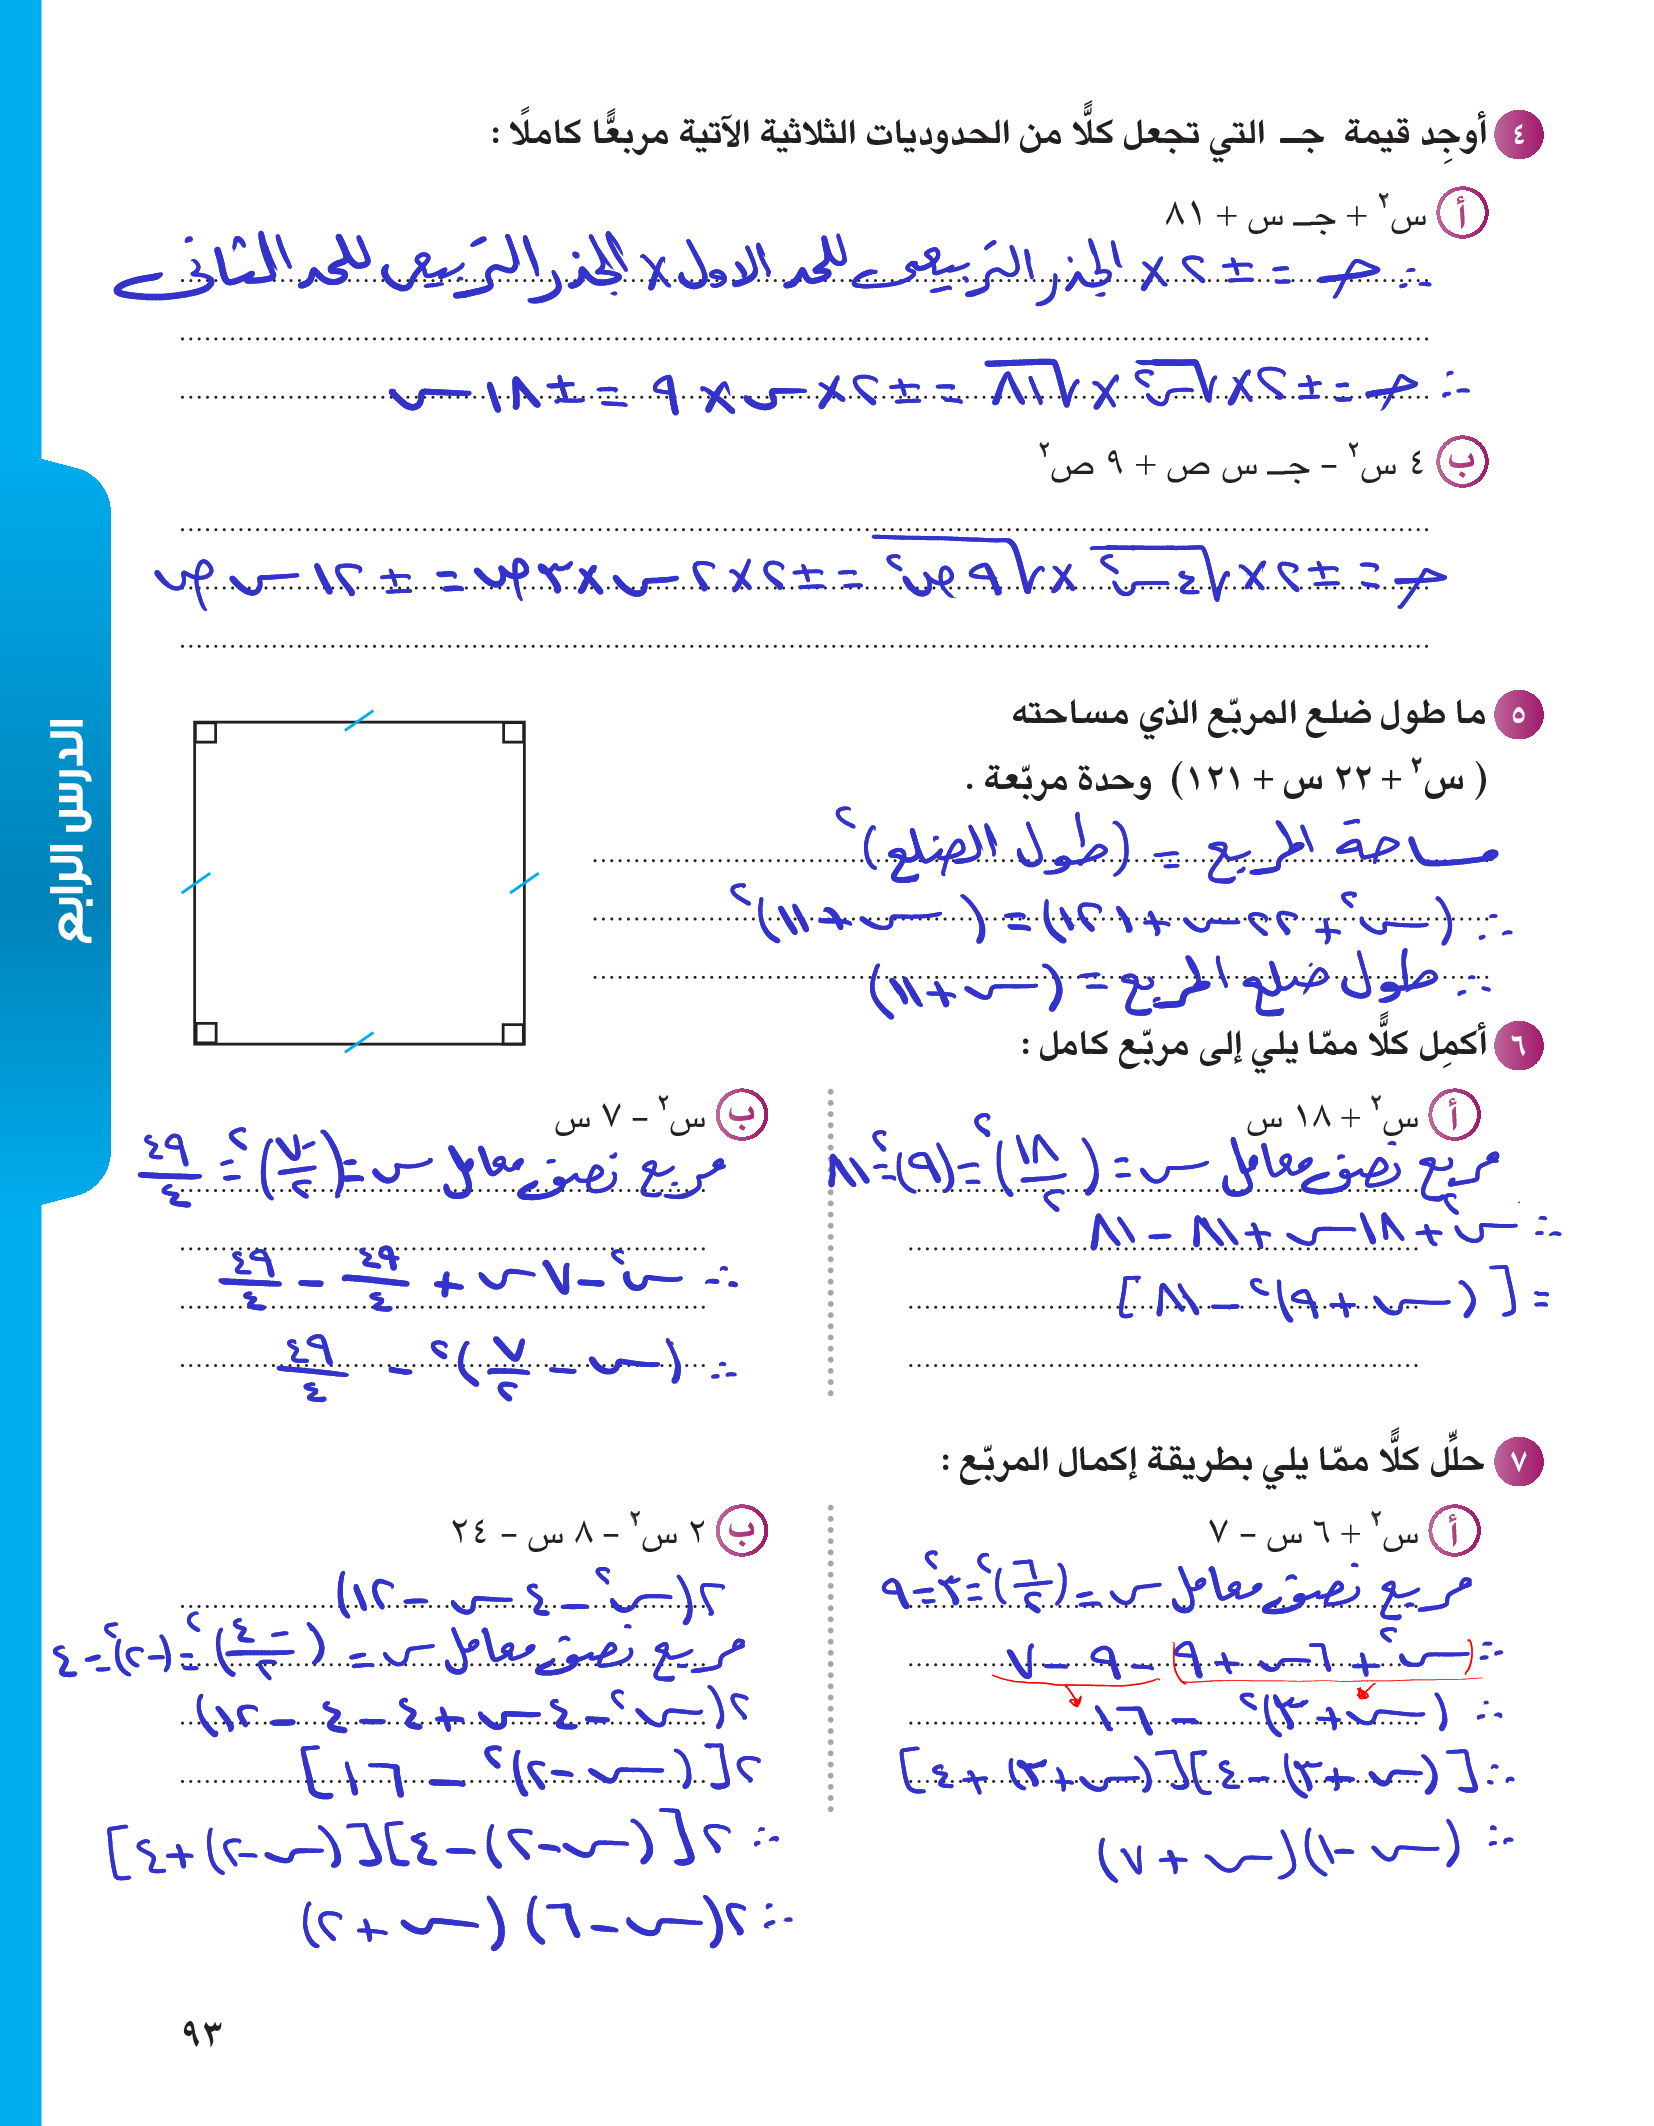 ٤ أوجِد قيمة جـ التي تجعل كلًّا من الحدوديات الثلاثية الآتية مربعًّا كاملًا :
أ س² + جـ س + ٨١
∴ حـ = ± ٢ × الجذر التربيعى للحد الاول × الجذر التربيعى للحد الثانى
∴ حـ = ± ٢ × √س² × √٨١ = ± ٢ × س × ٩ = ± ١٨ س
ب ٤ س² – جـ س ص + ٩ ص²
حـ = ± ٢ × √٤س² × √٩ص² = ± ٢ × ٢ س × ٣ ص = ± ١٢ س ص
٥ ما طول ضلع المربّع الذي مساحته
( س² + ٢٢ س + ١٢١) وحدة مربّعة .
مساحة المربع = (طول الضلع)²
∴ (س² + ٢٢ س + ١٢١) = (س + ١١)²
∴ طول ضلع المربع = (س + ١١)
٦ أكمِل كلًّا ممّا يلي إلى مربّع كامل :
أ س² + ١٨ س
مربع نصف معامل س = (١٨/٢)² = (٩)² = ٨١
∴ س² + ١٨ س + ٨١ − ٨١
= [(س + ٩)² − ٨١]
ب س² – ٧ س
مربع نصف معامل س = (−٧/٢)² = ٤٩/٤
∴ س² − ٧ س + ٤٩/٤ − ٤٩/٤
∴ (س − ٧/٢)² − ٤٩/٤
٧ حلِّل كلًّا ممّا يلي بطريقة إكمال المربّع :
أ س² + ٦ س – ٧
مربع نصف معامل س = (٦/٢)² = ٣² = ٩
∴ س² + ٦ س + ٩ − ٩ − ٧
∴ (س + ٣)² − ١٦
∴ [(س + ٣) − ٤][(س + ٣) + ٤]
∴ (س − ١)(س + ٧)
ب ٢ س² – ٨ س – ٢٤
٢(س² − ٤ س − ١٢)
مربع نصف معامل س = (−٤/٢)² = (−٢)² = ٤
٢(س² − ٤ س + ٤ − ٤ − ١٢)
٢[(س − ٢)² − ١٦]
∴ ٢[(س − ٢) − ٤][(س − ٢) + ٤]
∴ ٢(س − ٦)(س + ٢)
الدرس الرابع
٩٣